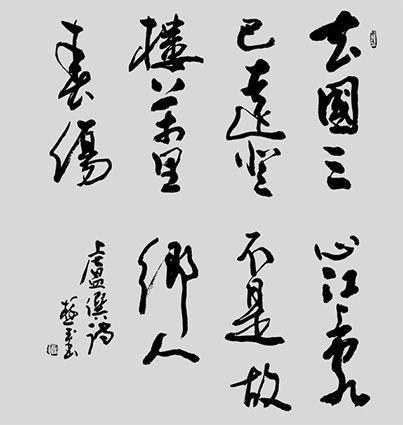 去國三
巴遠登
樓萬里
春傷
心江上客
不是故
鄉人
盧僎詩
書